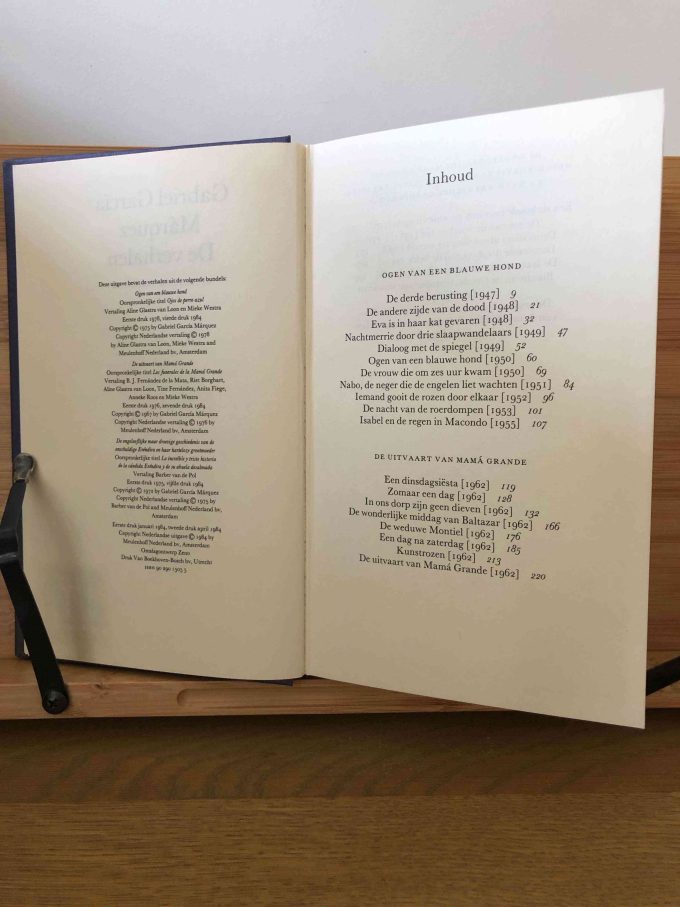 Deze uitgave bevat de verhalen uit de volgende bundels:
Ogen van een blauwe hond
Oorspronkelijke titel Ojos de perro azul
Vertaling Aline Glastra van Loon en Mieke Westra
Eerste druk 1978, vierde druk 1984
Copyright © 1975 by Gabriel García Márquez
Copyright Nederlandse vertaling © 1978
by Aline Glastra van Loon, Mieke Westra en
Meulenhoff Nederland bv, Amsterdam
De uitvaart van Mamá Grande
Oorspronkelijke titel Los funerales de la Mamá Grande
Vertaling B. J. Fernándes de la Mata, Riet Borghart,
Aline Glastra van Loon, Tine Fernández, Anita Fiege,
Anneke Roos en Mieke Westra
Eerste druk 1976, zevende druk 1984
Copyright © 1967 by Gabriel García Márquez
Copyright Nederlandse vertaling © 1976 by
Meulenhoff Nederland bv, Amsterdam
De ongelooflijke maar droevige geschiedenis van de
onschuldige Eréndira en haar harteloze grootmoeder
Oorspronkelijke titel La increíble y triste historia
de la cándida Eréndira y de su abuela desalmada
Vertaling Barber van de Pol
Eerste druk 1975, vijfde druk 1984
Copyright © 1972 by Gabriel García Márquez
Copyright Nederlandse vertaling © 1975 by
Barber van de Pol en Meulenhoff Nederland bv,
Amsterdam
Eerste druk januari 1984, tweede druk april 1984
Copyright Nederlandse uitgave © 1984 by
Meulenhoff Nederland bv, Amsterdam
Omslagontwerp Zeno
Druk Van Boekhoven-Bosch bv, Utrecht
ISBN 90 290 1505 5
Inhoud
OGEN VAN EEN BLAUWE HOND
De derde berusting [1947] 9
De andere zijde van de dood [1948] 21
Eva is in haar kat gevaren [1948] 32
Nachtmerrie door drie slaapwandelaars [1949] 47
Dialoog met de spiegel [1949] 52
Ogen van een blauwe hond [1950] 60
De vrouw die om zes uur kwam [1950] 69
Nabo, de neger die de engelen liet wachten [1951] 84
Iemand gooit de rozen door elkaar [1952] 96
De nacht van de roerdompen [1953] 101
Isabel en de regen in Macondo [1955] 107
DE UITVAART VAN MAMÁ GRANDE
Een dinsdagsiësta [1962] 119
Zomaar een dag [1962] 128
In ons dorp zijn geen dieven [1962] 132
De wonderlijke middag van Baltazar [1962] 166
De weduwe Montiel [1962] 176
Een dag na zaterdag [1962] 185
Kunstrozen [1962] 213
De uitvaart van Mamá Grande [1962] 220